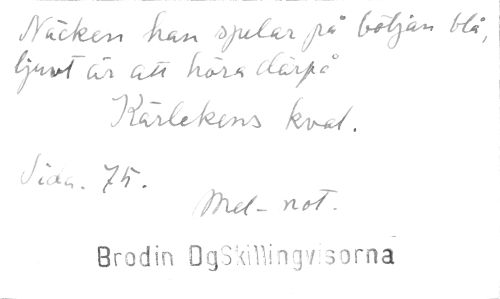 Näcken han spelar på böljan blå,
ljuvt är att höra därpå
Kärlekens kval.
Sida. 75.
Mel-not.
Brodin DgSkillingvisorna